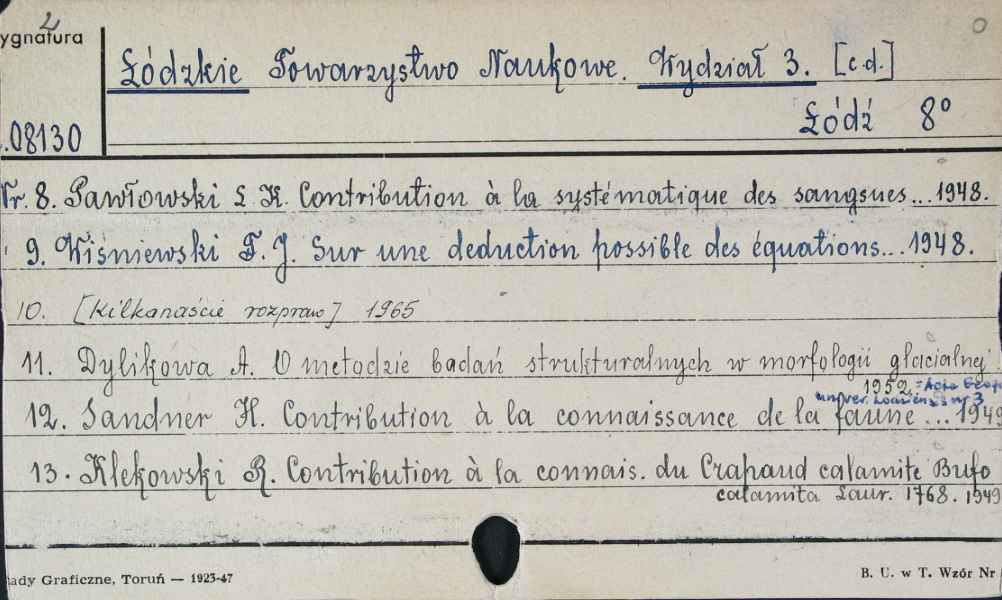 2
ygnatura
Łódzkie Towarzystwo Naukowe. Wydział 3. [c.d.]
Łódź 8°
.08130
Nr. 8. Pawłowski L. K. Contribution à la systématique des sangsues...1948.
9. Wiśniewski F. J. Sur une deduction possible des équations...1948.
10. [Kilkanaście rozpraw] 1965
11. Dylikowa A. O metodzie badań strukturalnych w morfologii glacialnej.
1952 = Acta Geogr.
univer. Lodziensis nr 3
12. Sandner H. Contribution à la connaissance de la faune ... 1949
13. Klekowski R. Contribution à la connais. du Crapaud calamite Bufo
calamita Laur. 1768. 1949
ady Graficzne, Toruń — 1923-47
B. U. w T. Wzór Nr